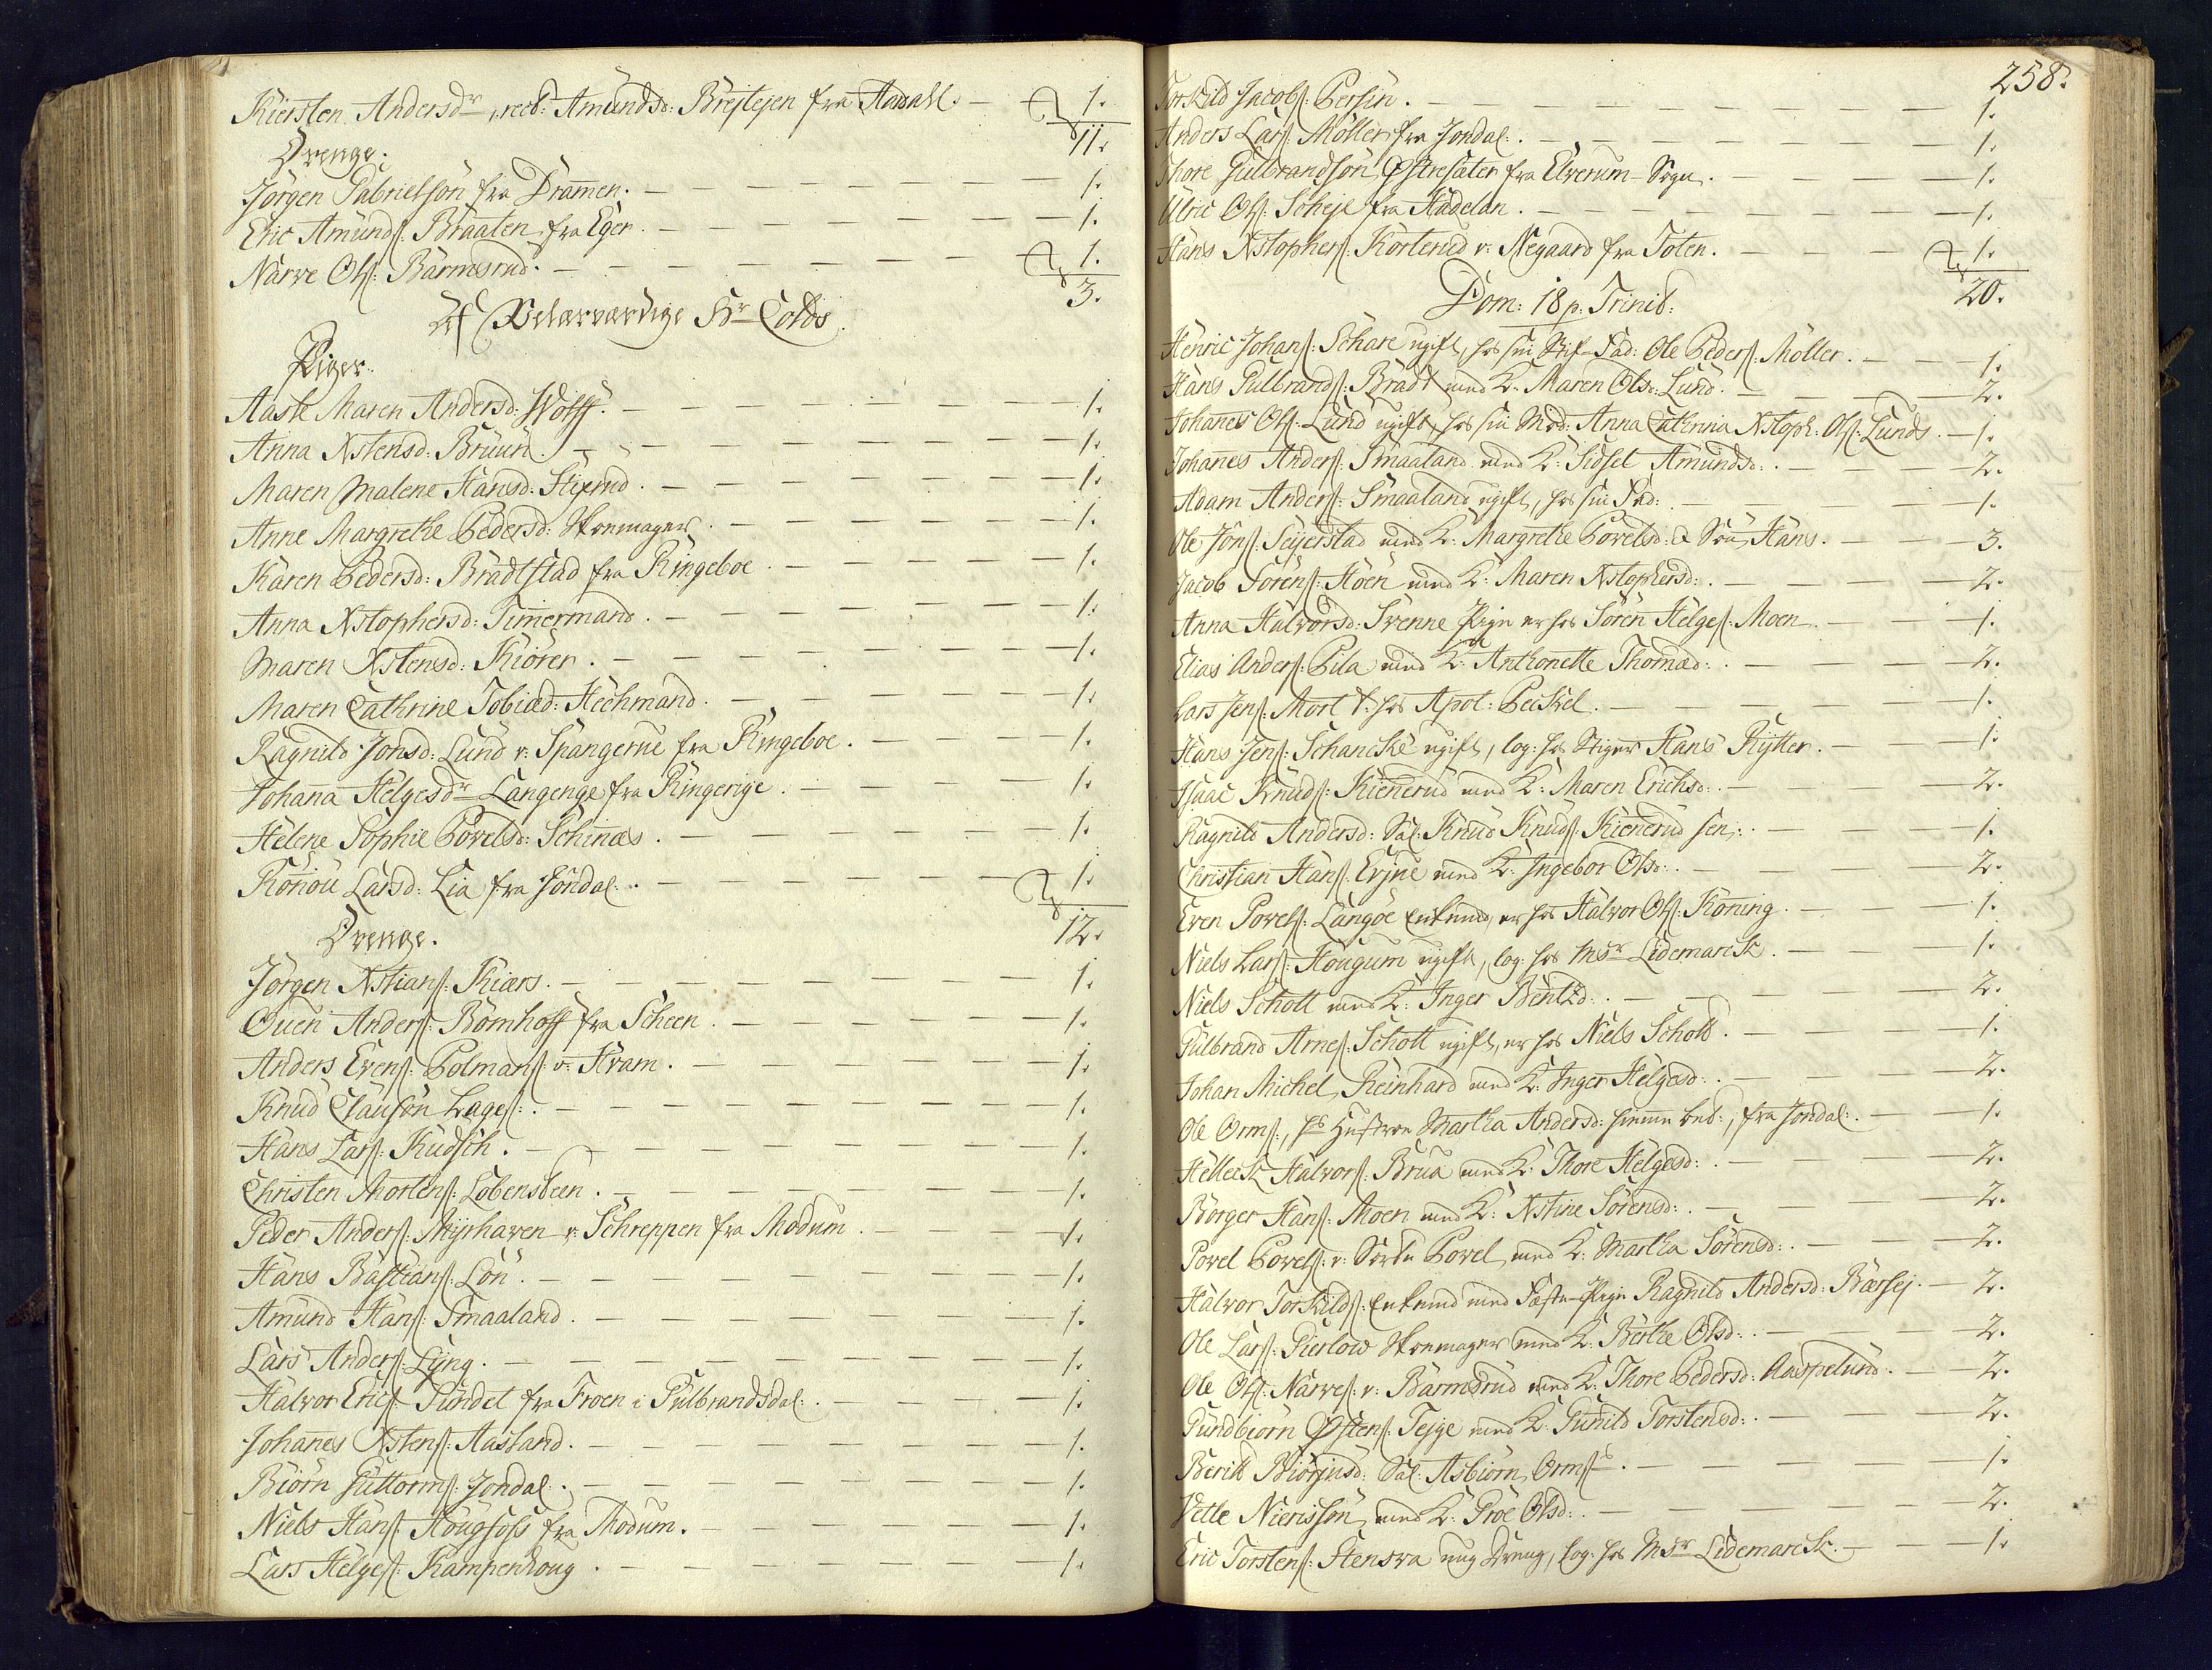 Kiersten Andersdr, rect: Amundsd: Brejlejen fra Aadahl. — 1.
11.
Drenge.
Jörgen Gabrielsön fra Dramen. — 1.
Eric Amunds: Braaten fra Eger. — 1.
Narve Ols: Bärmsrud. — 1.
3.
Af Velærværdige Hr Colds
Piger.
Aaste Maren Andersd: Wolff. — 1.
Anna Xstensd: Bruun. — 1.
Maren Malene Hansd: Stixrud. — 1.
Anne Margrethe Pedersd: Skoemager. — 1.
Karen Pedersd: Bradtstad fra Ringeboe. — 1.
Anna Xstophersd: Timermand. — 1.
Maren Xstensd: Kiörer. — 1.
Maren Cathrine Tobiæd: Hechmand. — 1.
Ragnild Jonsd: Lund v: Spangerne fra Ringeboe. — 1.
Johana Helgesdr Langenge fra Ringerige. — 1.
Helene Sophie Povelsd: Schinæs. — 1.
Röniou Larsd: Lia fra Jondal. — 1.
12.
Drenge.
Jörgen Xstians: Kiærs. — 1.
Ouen Anders: Bömhoff fra Scheen. — 1.
Anders Evens: Polmans: v: Hvam. — 1.
Knud Clausön Lages: — 1.
Hans Lars: Kudsch. — 1.
Christen Mortens: Löbensteen. — 1.
Peder Anders: Myrhaven v: Schreppen fra Modum. — 1.
Hans Bastians: Lön. — 1.
Amund Hans: Smaaland. — 1.
Lars Anders: Lyng. — 1.
Halvor Erics: Sundet fra Froen i Gulbrandsdal. — 1.
Johanes Xstens: Aasland. — 1.
Biörn Guttorms: Jondal. — 1.
Niels Hans: Hougfoss fra Modum. — 1.
Lars Helges: Kampenhoug. — 1.
258.
Torkild Jacobs: Persin. — 1.
Anders Lars: Möller fra Jondal. — 1.
Thore Gulbrandsön Østresäter fra Elverum Sogn. — 1.
Ulric Ols: Scheje fra Hadelan. — 1.
Hans Xstophers: Korterud v: Negaard fra Toten. — 1.
20.
Dom: 18 p. Trinit:
Henric Johans: Schare ugift, hos sin Stif-Fad: Ole Peders: Möller. — 1.
Hans Gulbrands: Bradt med K: Maren Olsd: Lund. — 2.
Johanes Ols: Lund ugift, hos sin Mod: Anna Cathrina Xstoph: Ols: Lunds. — 1.
Johanes Anders: Smaaland med K: Sidsel Amundsd: — 2.
Adam Anders: Smaaland ugift, hos sin Fad: — 1.
Ole Jöns: Sejerstad med K: Margrethe Povelsd: & Sön Hans. — 3.
Jacob Sörens: Höen med K: Maren Xstophersd: — 2.
Anna Halvorsd: Svenne Pige er hos Sören Helges: Moen. — 1.
Elias Anders: Pila med K: Anthonette Thomæd: — 2.
Lars Jens: Mort t: hos Apot: Peckel. — 1.
Hans Jens: Schancke ugift, log: hos Stiger Hans Rytter. — 1.
Isaac Knuds: Kienerud med K: Maren Erichsd: — 2.
Ragnild Andersd: Sal: Knud Knuds: Kienerud sen: — 1.
Christian Hans: Erjne med K: Ingebor Olsd: — 2.
Even Povels: Langöe Enkemd, er hos Halvor Ols: Köning. — 1.
Niels Lars: Hougum ugift, log: hos Msr Lidemarck. — 1.
Niels Schott med K: Inger Bentzd: — 2.
Gulbrand Arnes: Schott ugift, er hos Niels Schott. — 1.
Johan Michel Reinhard med K: Inger Helgesd: — 2.
Ole Orms:, hs Hustroe Martha Andersd: hiemme bet:, fra Jondal. — 1.
Helleck Halvors: Brua med K: Thore Helgesd: — 2.
Börger Hans: Moen med K: Xstine Sörensd: — 2.
Povel Povels: v: Sorte Povel med K: Martha Sörensd: — 2.
Halvor Torkilds: Enkemd med Fæste-Pige Ragnild Andersd: Barsej. — 2.
Ole Lars: Gierlow Skoemager med K: Berthe Olsd: — 2.
Ole Ols: Narves: v: Bärmsrud med K: Thore Pedersd: Aaspelund. — 2.
Gundbiörn Östens: Tejge med K: Gunild Torstensd: — 2.
Berith Biörjnsd: Sal: Asbiörn Ormss. — 1.
Vetle Nierissön med K: Groe Olsd: — 2.
Eric Torstens: Stensra ung Dreng, log: hos Msr Lidemarck. — 1.